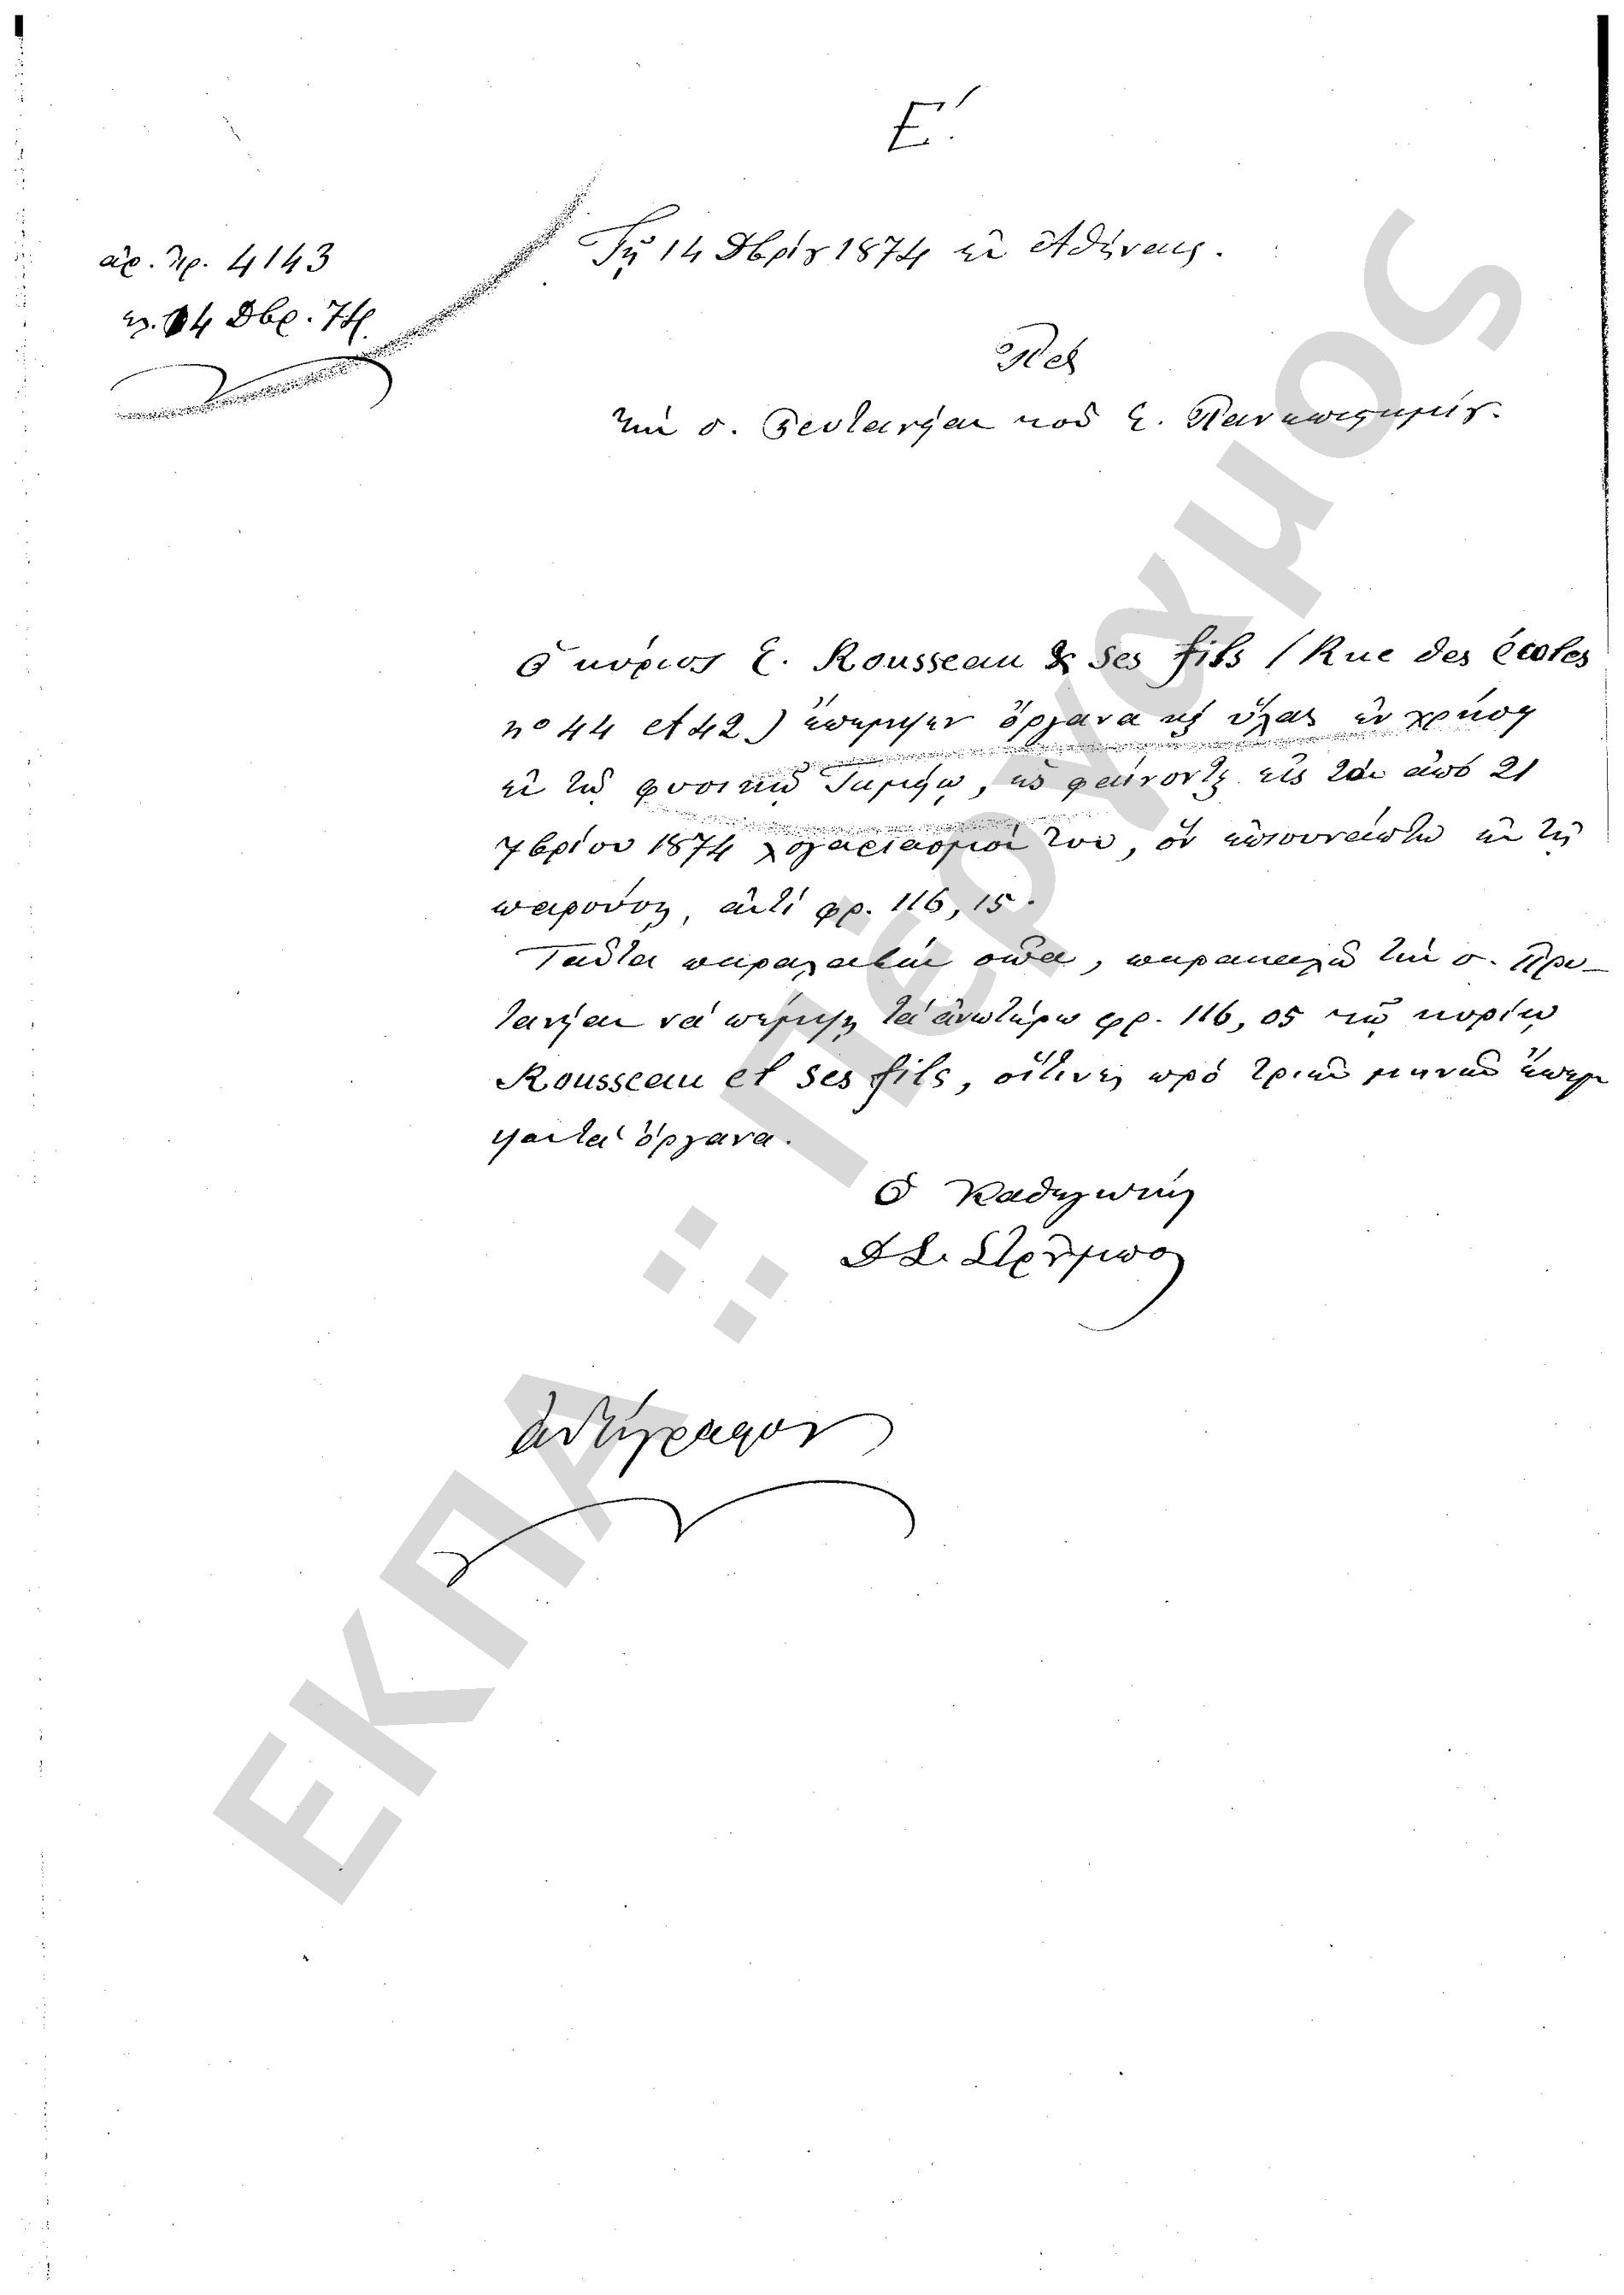 Ε΄.
ἀρ. πρ. 4143
14 Δβρ. 74
Τῇ 14 Δβρίου 1874 ἐν Ἀθήναις.
Πρὸς
τὴν σ. Πρυτανείαν τοῦ Ἐ. Πανεπιστημίου.
Ὁ κύριος E. Rousseau & ses fils (Rue des écoles
no 44 et 42) ἔπεμψεν ὄργανα καὶ ὕλας ἐν χρήσει
ἐν τῷ φυσικῷ Ταμείῳ, ὡς φαίνονται εἰς τὸν ἀπὸ 21
7βρίου 1874 λογαριασμόν του, ὃν ἐπισυνάπτω ἐν τῇ
παρούσῃ, ἀντὶ φρ. 116,15.
Ταῦτα παραλαβὼν σῶα, παρακαλῶ τὴν σ. Πρυ-
τανείαν νὰ πέμψῃ τὰ ἀνωτέρω φρ. 116,05 τῷ κυρίῳ
Rousseau et ses fils, οἵτινες πρὸ τριῶν μηνῶν ἔπεμ
ψαν τὰ ὄργανα.
Ὁ Καθηγητὴς
Δ Σ. Στρούμπος
Ἀντίγραφον
ΕΚΠΑ :: Πέργαμος